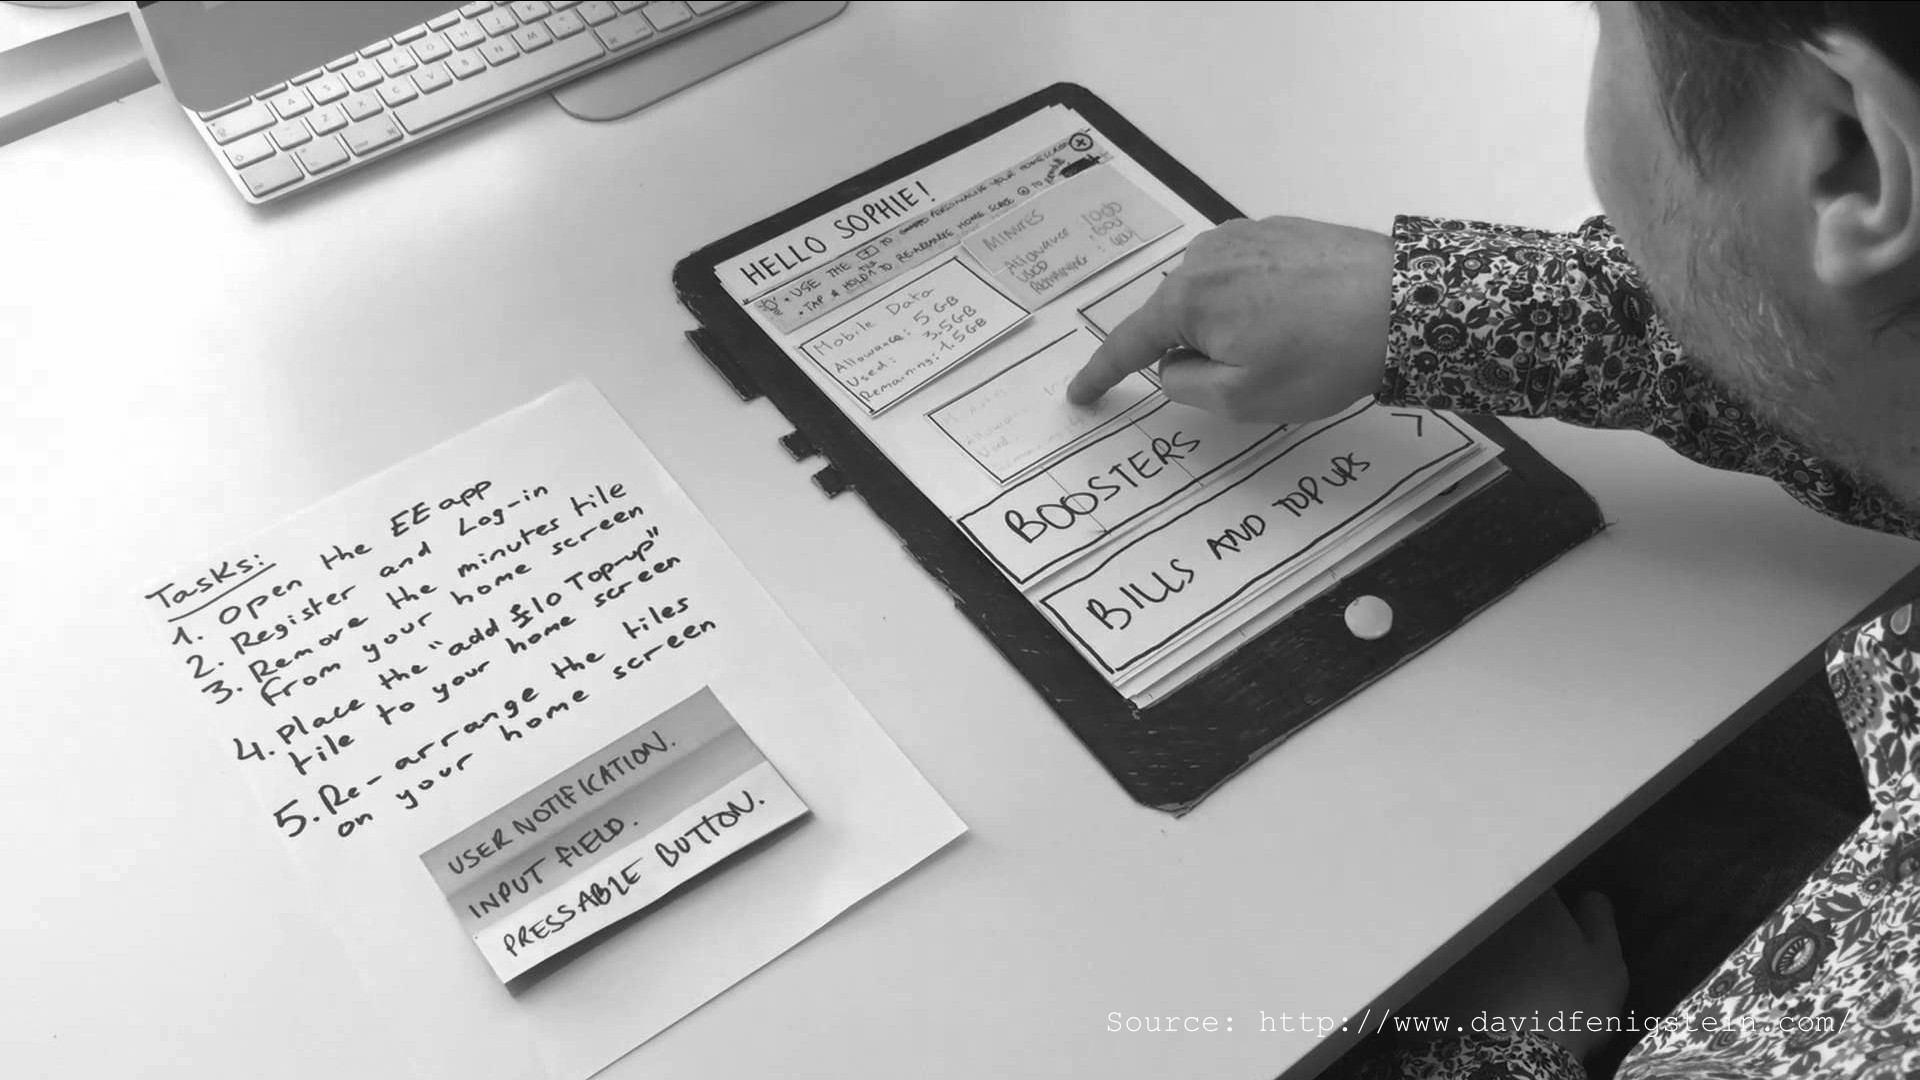 HELLO SOPHIE!
• USE THE + TO PERSONALISE YOUR HOMESCREEN
• TAP & HOLD TO RE-ARRANGE HOME SCREEN
MINUTES
Allowance : 1000
USED : 600
REMAINING : 400
Mobile Data
Allowance: 5 GB
Used: 3.5GB
Remaining: 1.5GB
BOOSTERS
BILLS AND TOP UPS
Tasks:
1. Open the EE app
2. Register and Log-in
3. Remove the minutes tile
from your home screen
4. Place the "add £10 Top-up"
tile to your home screen
5. Re-arrange the tiles
on your home screen
USER NOTIFICATION.
INPUT FIELD.
PRESSABLE BUTTON.
Source: http://www.davidfenigstein.com/